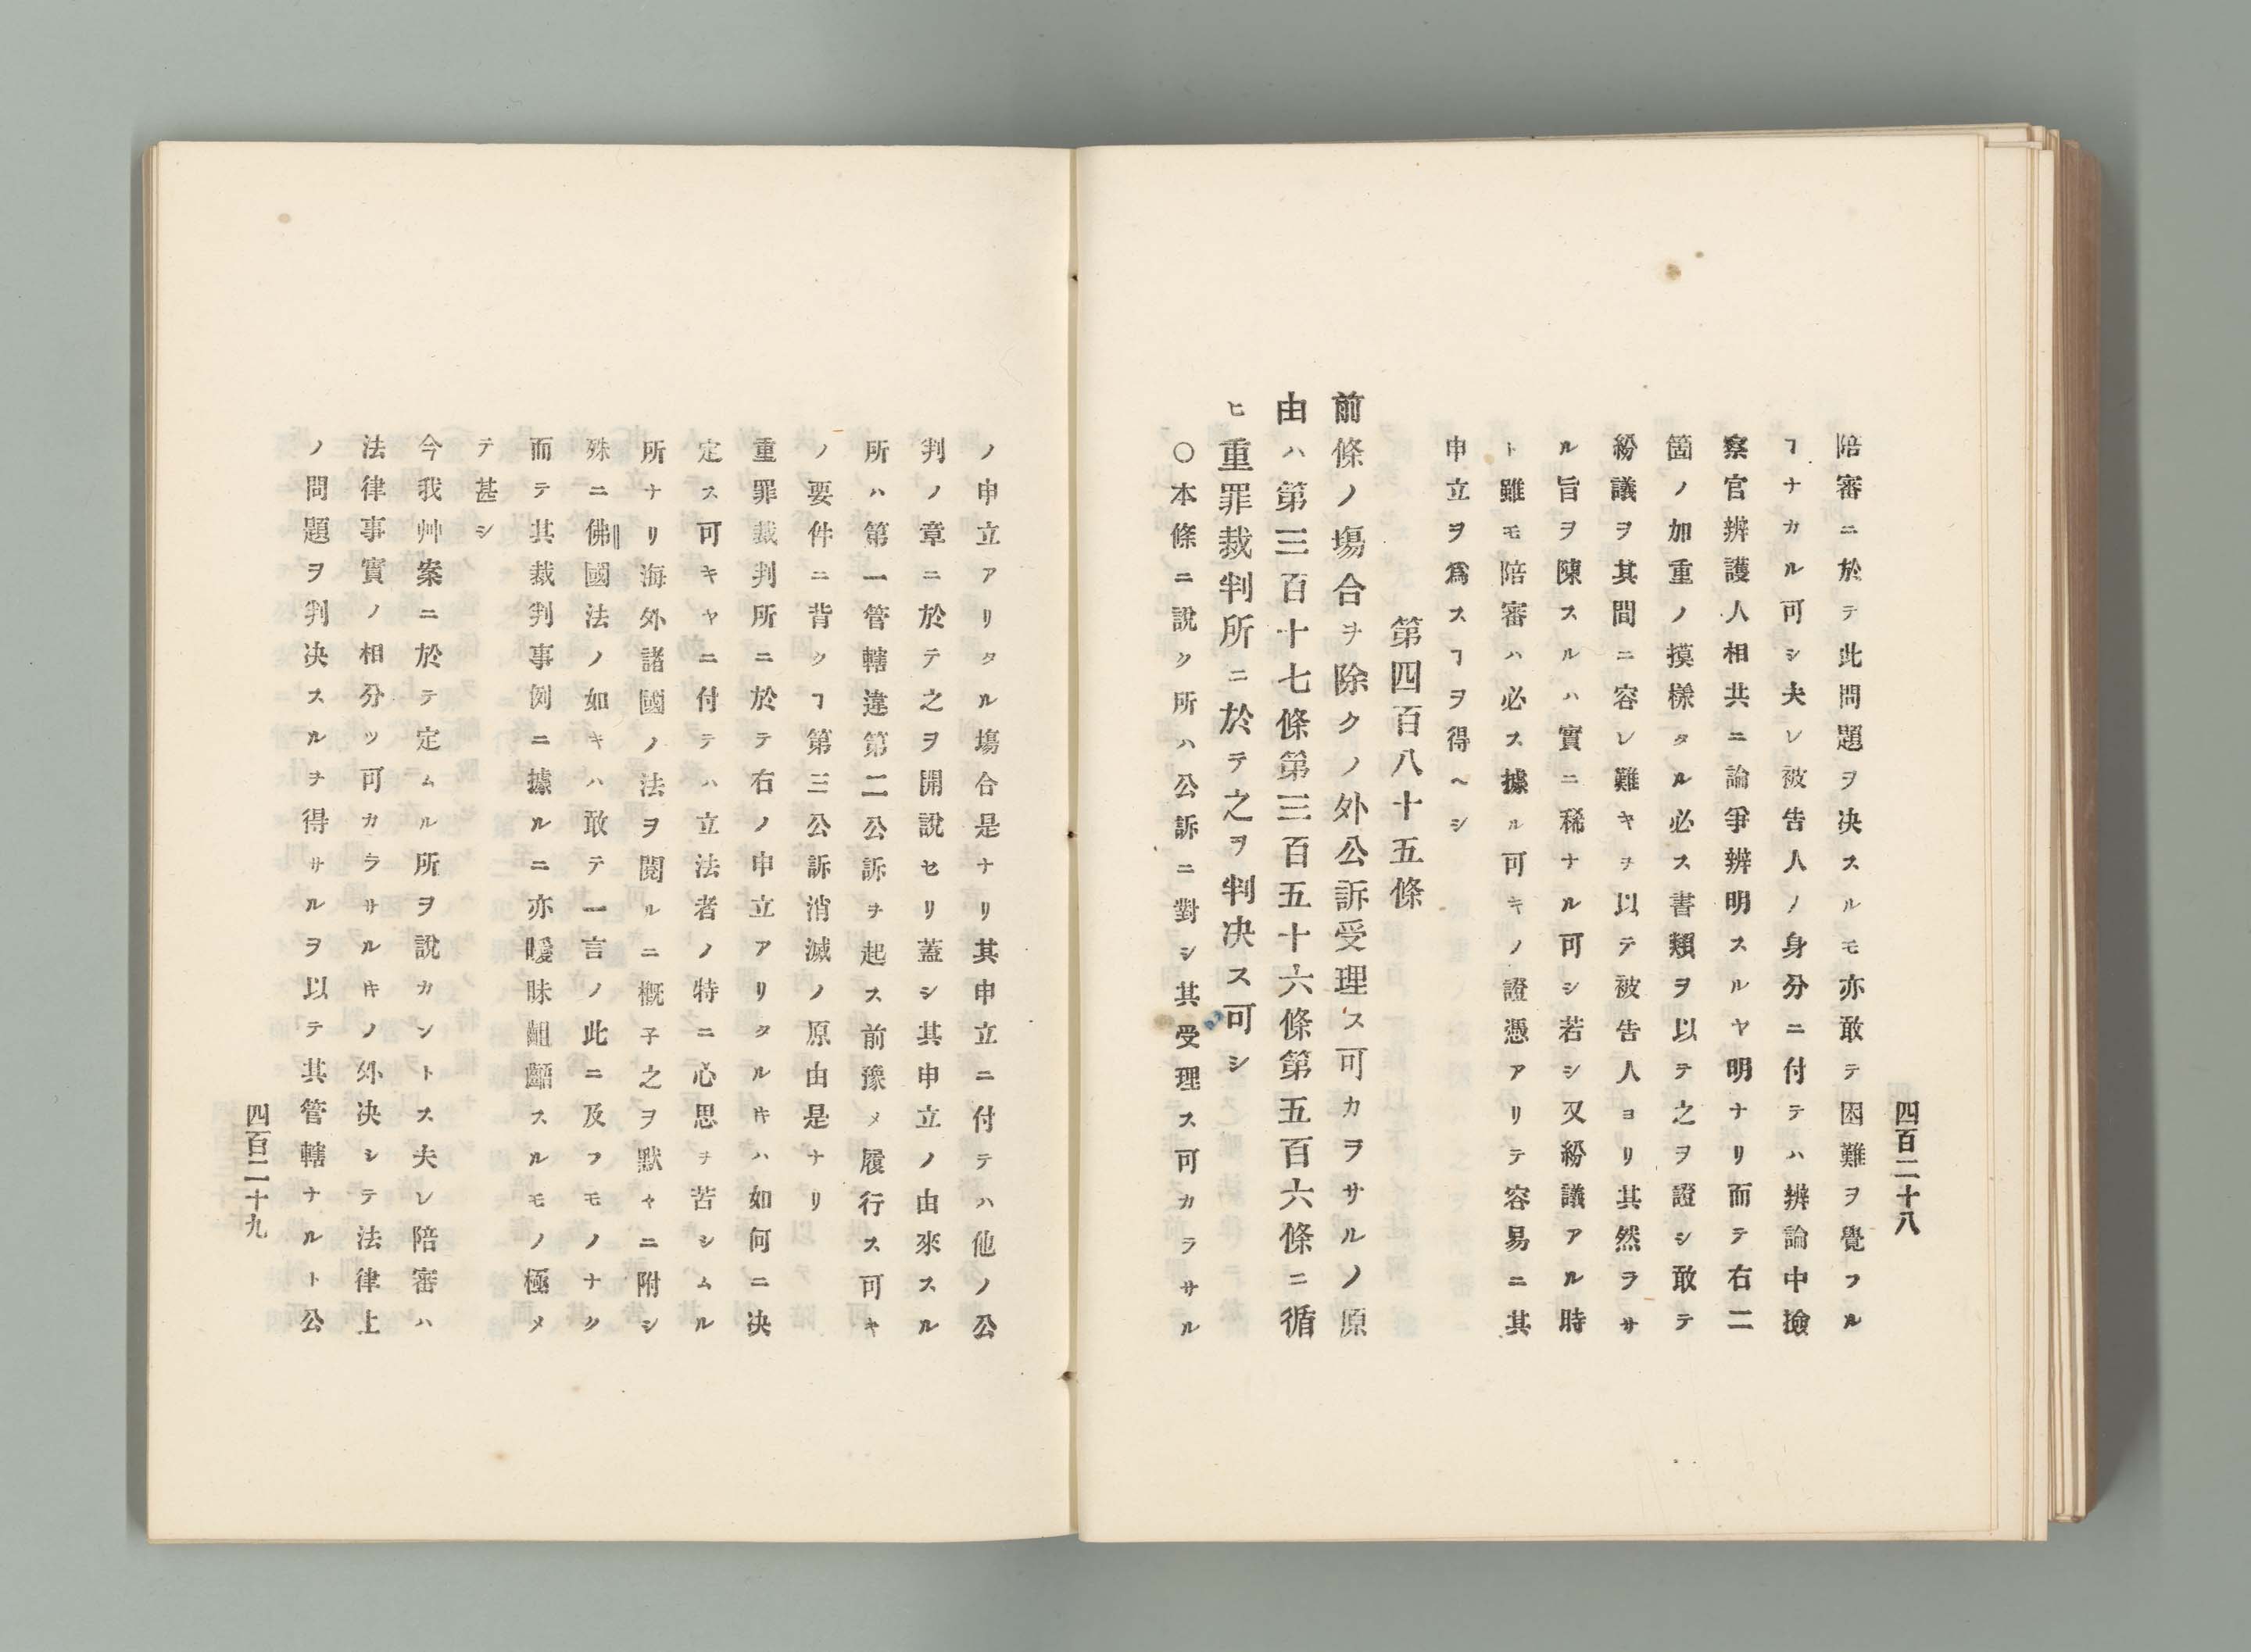 四百二十八
陪審ニ於テ此問題ヲ决スルモ亦敢テ困難ヲ覺フル
ヿナカル可シ夫レ被告人ノ身分ニ付テハ辨論中撿
察官辨護人相共ニ論爭辨明スルヤ明ナリ而テ右二
箇ノ加重ノ摸樣タル必ス書類ヲ以テ之ヲ證シ敢テ
紛議ヲ其間ニ容レ難キヲ以テ被告人ヨリ其然ラサ
ル旨ヲ陳スルハ實ニ稀ナル可シ若シ又紛議アル時
ト雖モ陪審ハ必ス據ル可キノ證憑アリテ容易ニ其
申立ヲ爲スヿヲ得ヘシ
第四百八十五條
前條ノ塲合ヲ除クノ外公訴受理ス可カヲサルノ原
由ハ第三百十七條第三百五十六條第五百六條ニ循
ヒ重罪裁判所ニ於テ之ヲ判决ス可シ
〇本條ニ說ク所ハ公訴ニ對シ其受理ス可カラサル
ノ申立アリタル塲合是ナリ其申立ニ付テハ他ノ公
判ノ章ニ於テ之ヲ開說セリ蓋シ其申立ノ由來スル
所ハ第一管轄違第二公訴ヲ起ス前豫メ履行ス可キ
ノ要件ニ背クヿ第三公訴消滅ノ原由是ナリ
重罪裁判所ニ於テ右ノ申立アリタルキハ如何ニ决
定ス可キヤニ付テハ立法者ノ特ニ心思ヲ苦シムル
所ナリ海外諸國ノ法ヲ閱ルニ槪子之ヲ默々ニ附シ
殊ニ佛國法ノ如キハ敢テ一言ノ此ニ及フモノナク
而テ其裁判事例ニ據ルニ亦曖昧齟齬スルモノ極メ
テ甚シ
今我艸案ニ於テ定ムル所ヲ說カントス夫レ陪審ハ
法律事實ノ相分ツ可カラサルキノ外决シテ法律上
ノ問題ヲ判决スルヲ得サルヲ以テ其管轄ナルト公
四百二十九